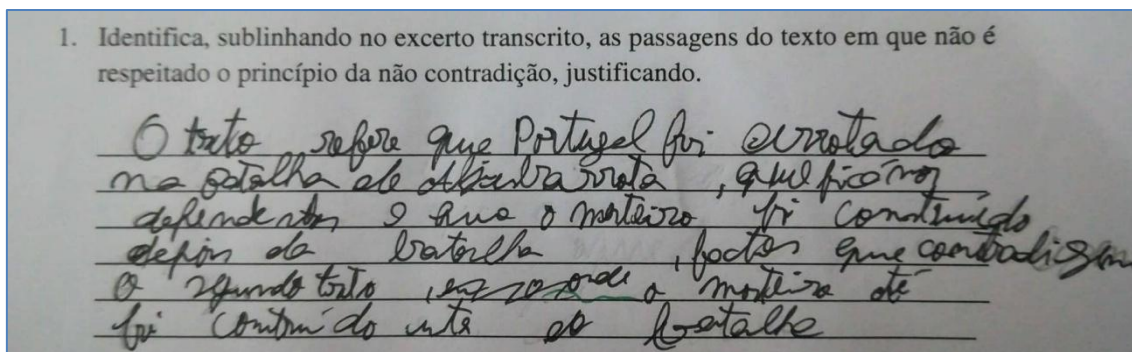 1. Identifica, sublinhando no excerto transcrito, as passagens do texto em que não é
respeitado o princípio da não contradição, justificando.
O texto refere que Portugal foi derrotado
na batalha de Aljubarrota, que ficámos
dependentes e que o mosteiro foi construído
depois da batalha, factos que contradizem
o segundo texto, onde o mosteiro até
foi construído antes da batalha